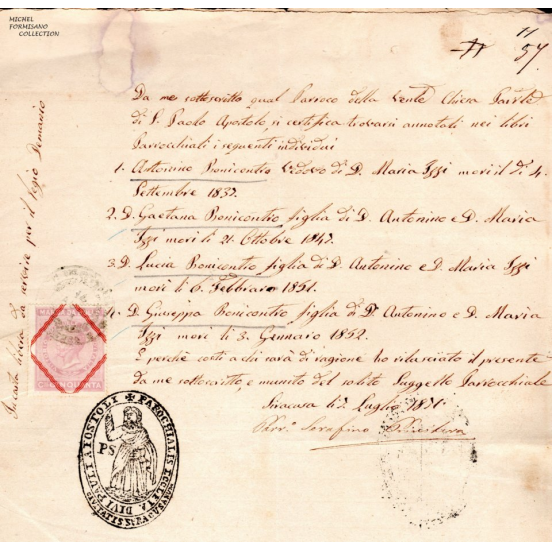 MICHEL
FORMISANO
COLLECTION
11
57
Da me sottoscritto qual Parroco della Chiesa
di S. Paolo Apostolo, si certifica trovarsi annotati nei libri
Parrocchiali i seguenti individui
1. Antonino Bonicontro Vedovo di D. Maria Izzi morì il dì 4.
Settembre 1837.
2. D. Gaetana Bonicontro figlia di D. Antonino e D. Maria
Izzi morì li 21. Ottobre 1847.
3. D. Lucia Bonicontro figlia di D. Antonino e D. Maria Izzi
morì li 6. Febbraro 1851.
4. D. Giuseppa Bonicontro figlia di Dn Antonino e D. Maria
Izzi morì li 3. Gennaro 1852.
E perchè costi a chi sarà di ragione ho rilasciato il presente
da me sottoscritto, e munito del solito Suggello Parrocchiale
Siracusa li Luglio 1871.
Serafino
In carta libera da servire per il regio Demanio
CINQUANTA
PAROCHIALIS ECCLESIA DIVI PAULI APOSTOLI
PS